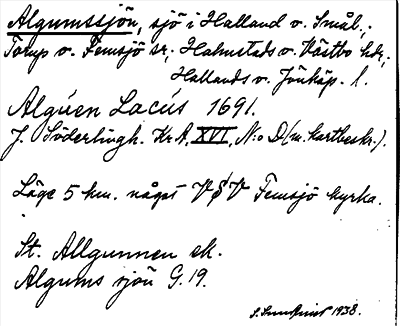 Algumssjön, sjö i Halland o. Smål.,
Torup o. Femsjö sr, Halmstads o. Västbo hdr,
Hallands o. Jönköp. l.
Algúen Lacús 1691.
J. Söderlingh. Kr.A. XVI, N:o D (m. kartbeskr.).
Läge 5 km. något VSV Femsjö kyrka.
St. Allgunnen ek.
Algums sjön G.19.
1938.